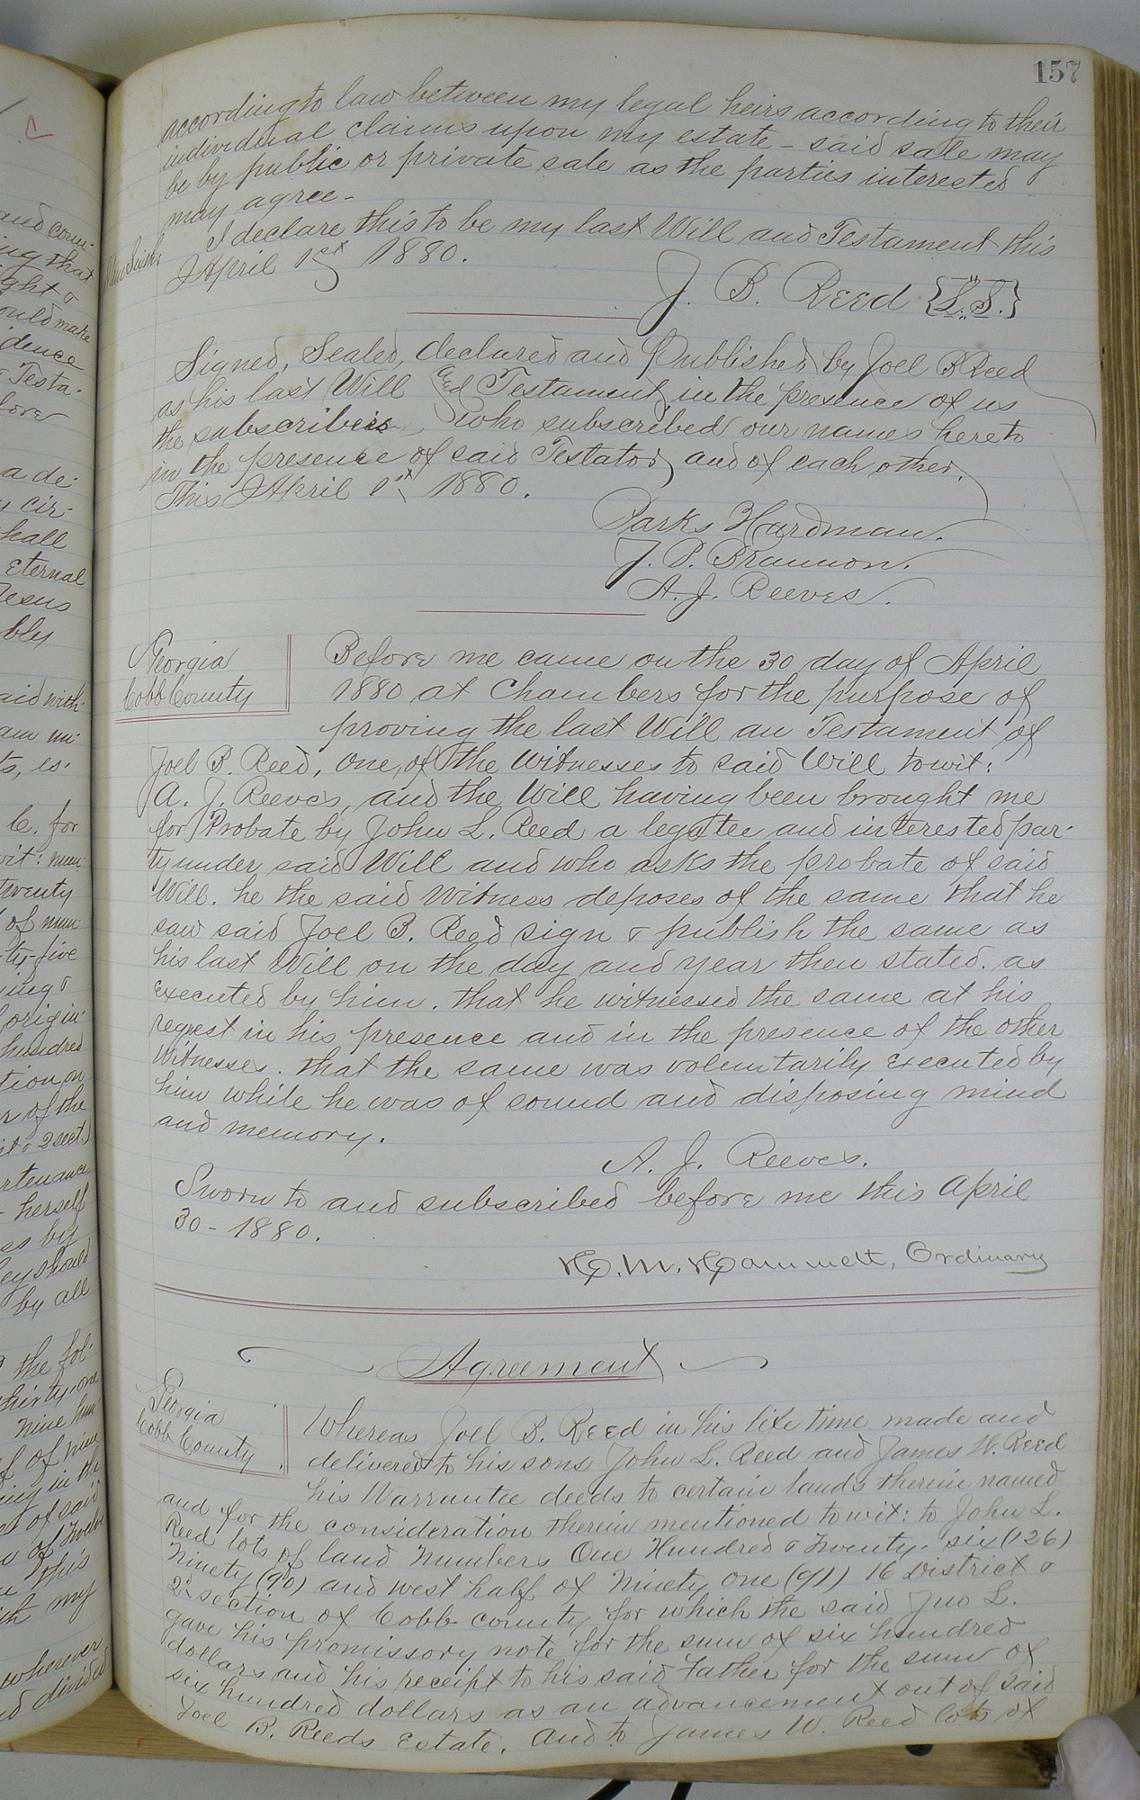 157
according to law between my legal heirs according to their
individual claims upon my estate - said sale may
be by public or private sale as the parties interested
may agree -
I declare this to be my last Will and Testament this
April 1st 1880.
J. B. Reed {L.S.}
Signed, Sealed, declared and Published by Joel B Reed
as his last Will and Testament, in the presence of us
the subscribers, who subscribed our names hereto
in the presence of said Testator, and of each other.
This April 1st 1880.
Parks Hardman.
J. P. Brannon.
A. J. Reeves.
Georgia
Cobb County
Before me came on the 30 day of April
1880 at Chambers for the purpose of
proving the last Will an Testament of
Joel B. Reed, one of the Witnesses to said Will to wit:
A. J. Reeves, and the Will having been brought me
for Probate by John L. Reed a legatee and interested par-
ty under said Will and who asks the probate of said
Will. he the said Witness deposes of the same that he
saw said Joel B. Reed sign & publish the same as
his last Will on the day and year then stated. as
executed by him. that he witnessed the same at his
request in his presence and in the presence of the other
Witnesses. that the same was voluntarily executed by
him while he was of sound and disposing mind
and memory.
A. J. Reeves.
Sworn to and subscribed before me this April
30 - 1880.
H. M. Hammett, Ordinary
Agreement
Georgia
Cobb County.
Whereas Joel B. Reed in his life time made and
delivered to his sons John L. Reed and James W. Reed
his Warrantee deeds to certain lands therein named
and for the consideration therein mentioned to wit: to John L.
Reed lots of land Numbers One Hundred & Twenty-six (126)
Ninety (90) and west half of Ninety one (91) 16 District &
2d section of Cobb county, for which the said Jno L.
gave his promissory note for the sum of six hundred
dollars and his receipt to his said Father for the sum of
six hundred dollars as an advancement out of said
Joel B. Reeds Estate. And to James W. Reed lots of